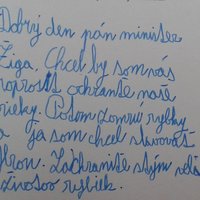 Dobrý deň pán minister
Žiga. Chcel by som vás
poprosiť ochráňte naše
rieky. Potom zomrú rybky
a ja som chcel stavovať
Hron. Zachránite stým veľa
životov rybiek.